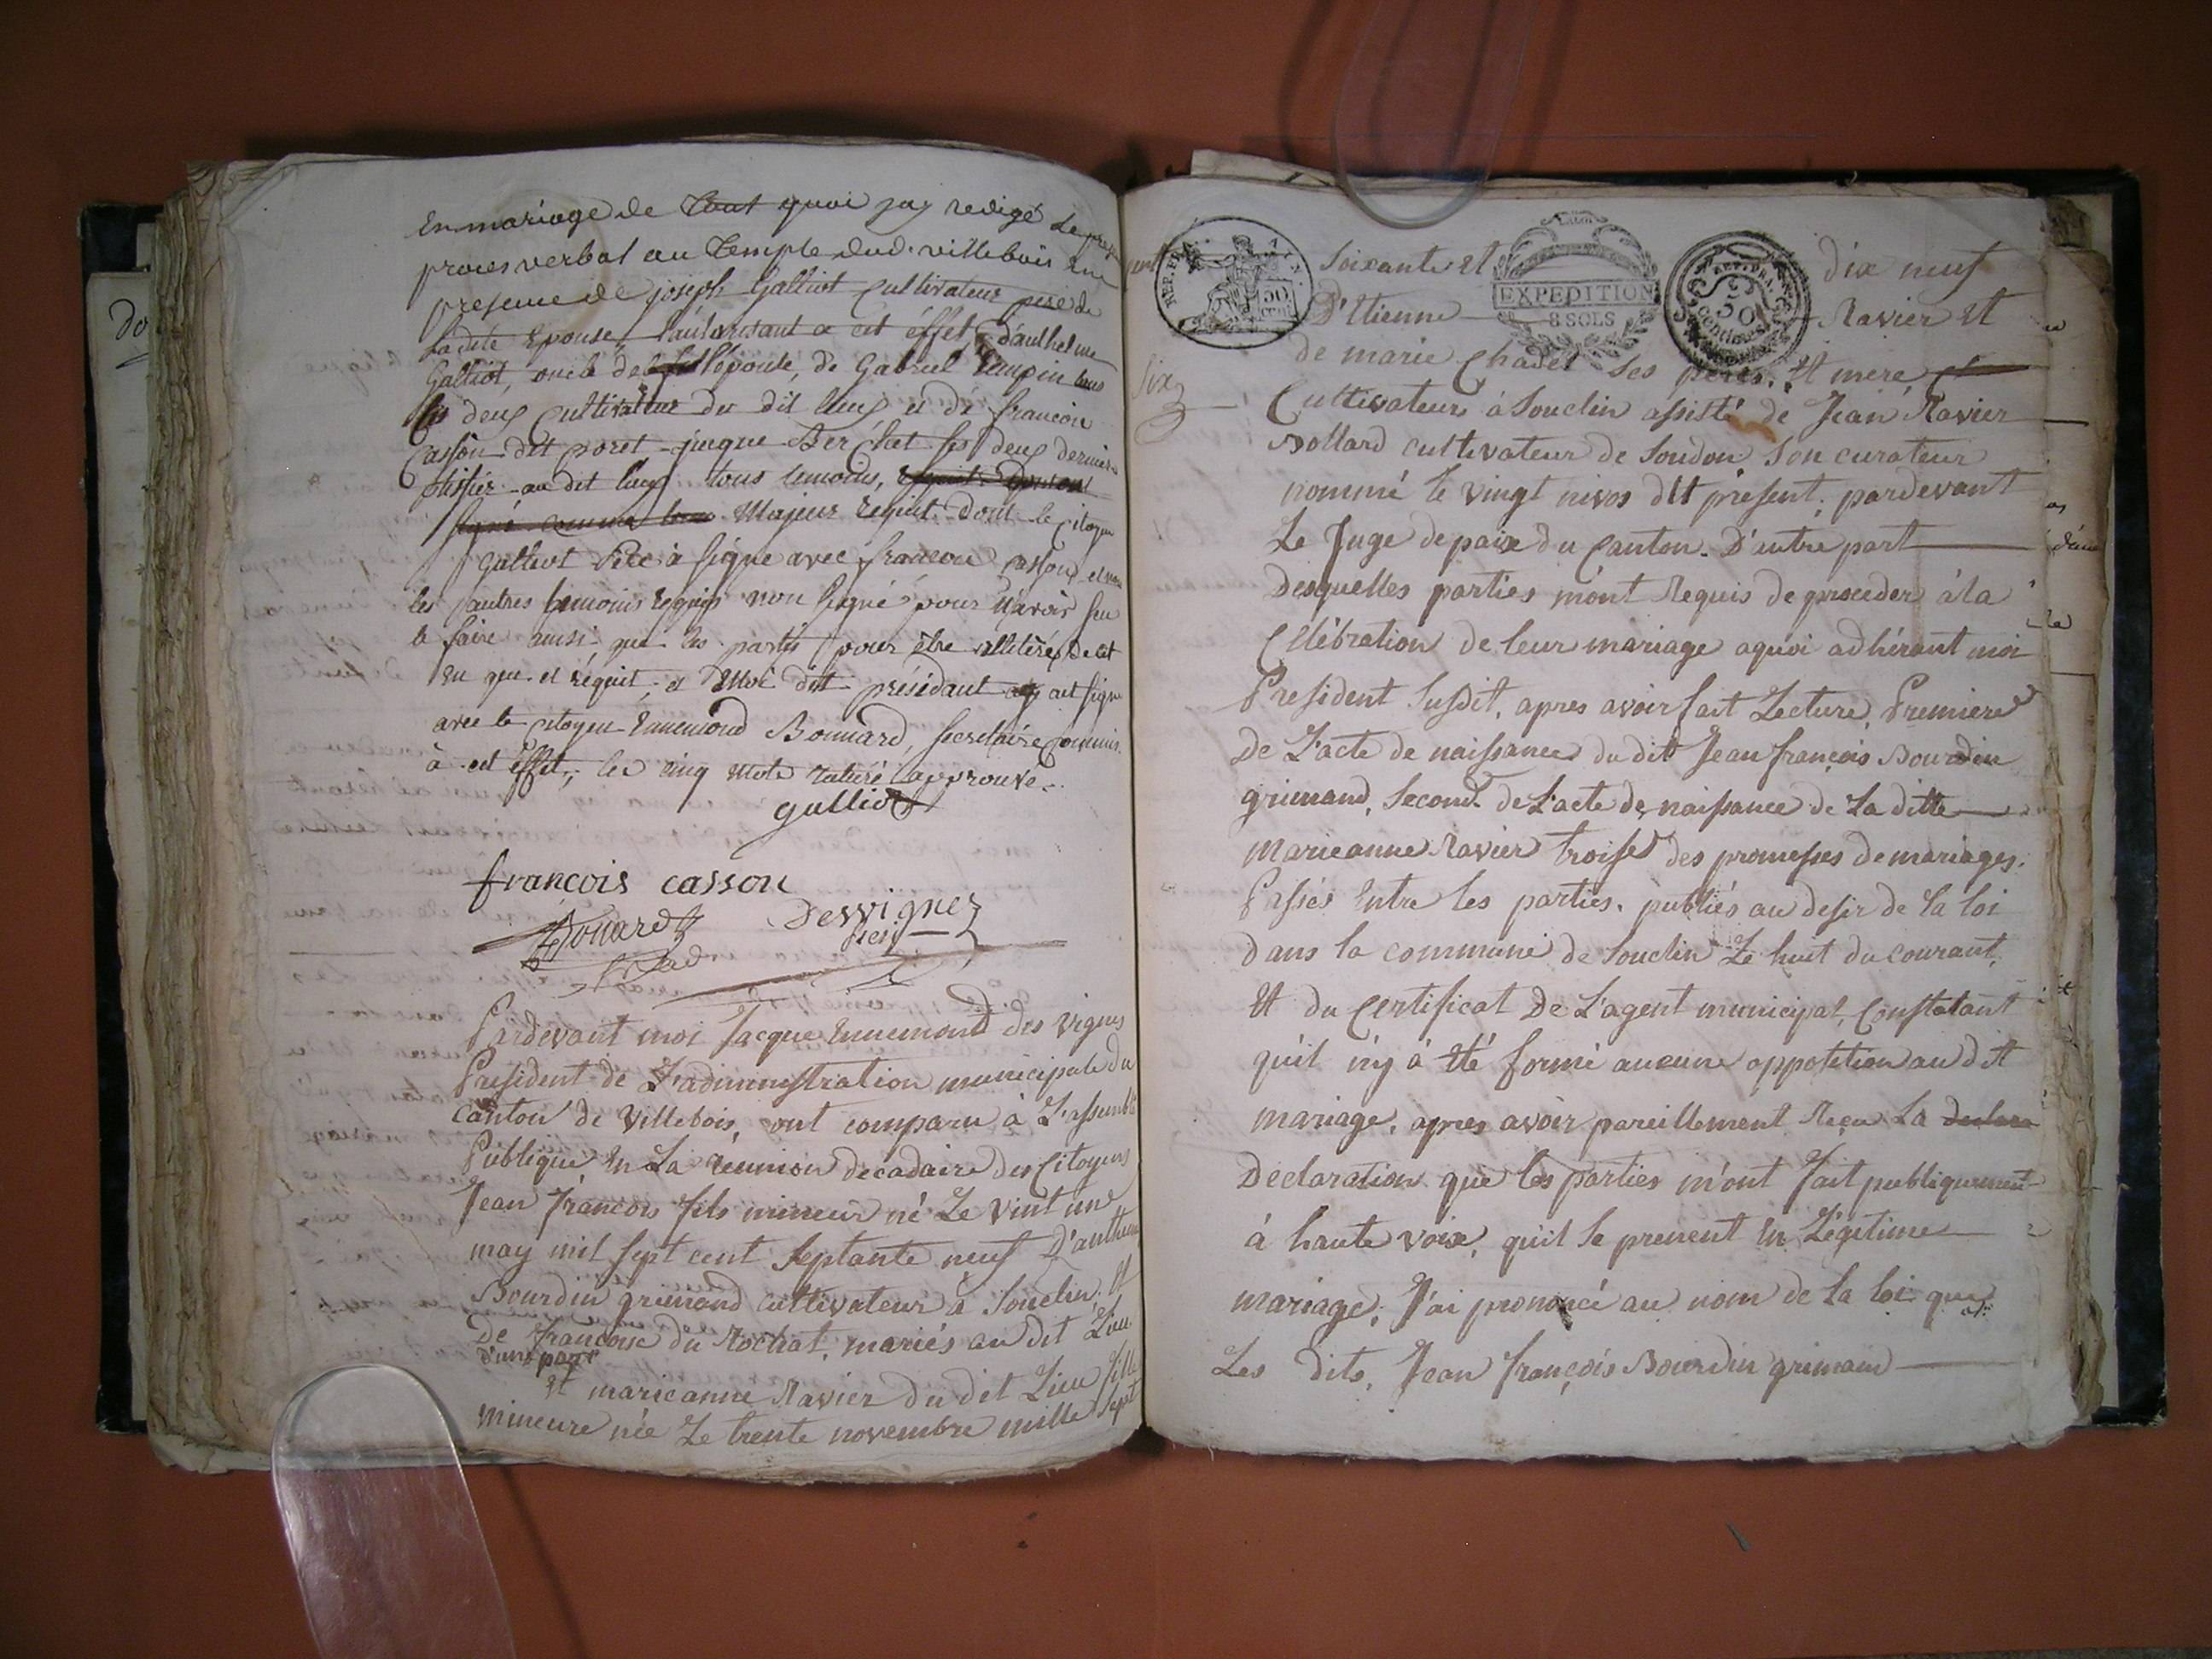 En mariage de tout quoi jay redigé Le
proces verbal au Temple dud. villebois en
presence de joseph Galliot cultivateur pere de
La dite Epouse, L'authorisant a cet éffet, d'aulhelme
Galliot, oncle de l'épouse, de Gabriel tous
les deux Cultivateur du dit lieux et de francois
Casson dit poret jacque Berchet les deux derniers
au dit lieux tous temoins,
Majeur requit dont le citoyen
Galliot Pere à signe avec francois casson et non
les autres temoins requis non signé pour n'avoir seu
le faire ainsi que les partis pour être illitérés de cet
en que et réquit, et Moi dit présidant ai signe
avec le citoyen Ennemond Bonnard, secretaire commis
à cet Effet, les cinq mots raturé approuvé.
galliot
francois casson
Desvignes
Bonnard
presi
Pardevant moi Jacque Ennemond des vignes
President de L'administration municipale du
canton de Villebois, ont comparu à L'assemblé
Publique En La reunion decadaire des Citoyens
Jean francois fils mineur né Le vint un
may mil sept cent septante neuf D'anthelme
Bourdin grimand cultivateur à Souclin, Et
De francoise du Rochat, mariés au dit Lieu
d'une part
Et marieanne Ravier du dit Lieu fille
mineure née Le trente novembre mille sept
REP. FRA.
50 cent.
soixante Et
LA LOI
EXPEDITION
8 SOLS
REP. FRA.
50
Centimes
dix neuf
D'Etienne Ravier Et
de marie Chadel ses peres Et mere
six
Cultivateurs à Souclin assisté de Jean Ravier
Bollard cultivateur de Soudon Son curateur
nommé le vingt nivos dit présent, pardevant
Le Juge de paix du Canton. D'autre part
Desquelles parties m'ont Requis de proceder à la
Célébration de leur mariage aquoi adhérant moi
President Susdit, apres avoir fait Lecture, Premiere
De L'acte de naissance du dit Jean françois Bourdin
grimand, Second. de L'acte de naissance de La ditte
marieanne Ravier troise des promesses de mariages.
Passées Entre les parties, publiés au desir de la loi
dans la commune de Souclin Le huit du courant,
Et du Certificat De L'agent municipal, constatant
qu'il n'y à Eté formé aucune oppotetion au dit
mariage, apres avoir pareillement Reçu La declara
Declaration que les parties m'ont fait publiquement
à haute voix, qu'il se prenent En Légetime
mariage, J'ai prononcé au nom de la loi que
Les dits, Jean françois Bourdin grimand